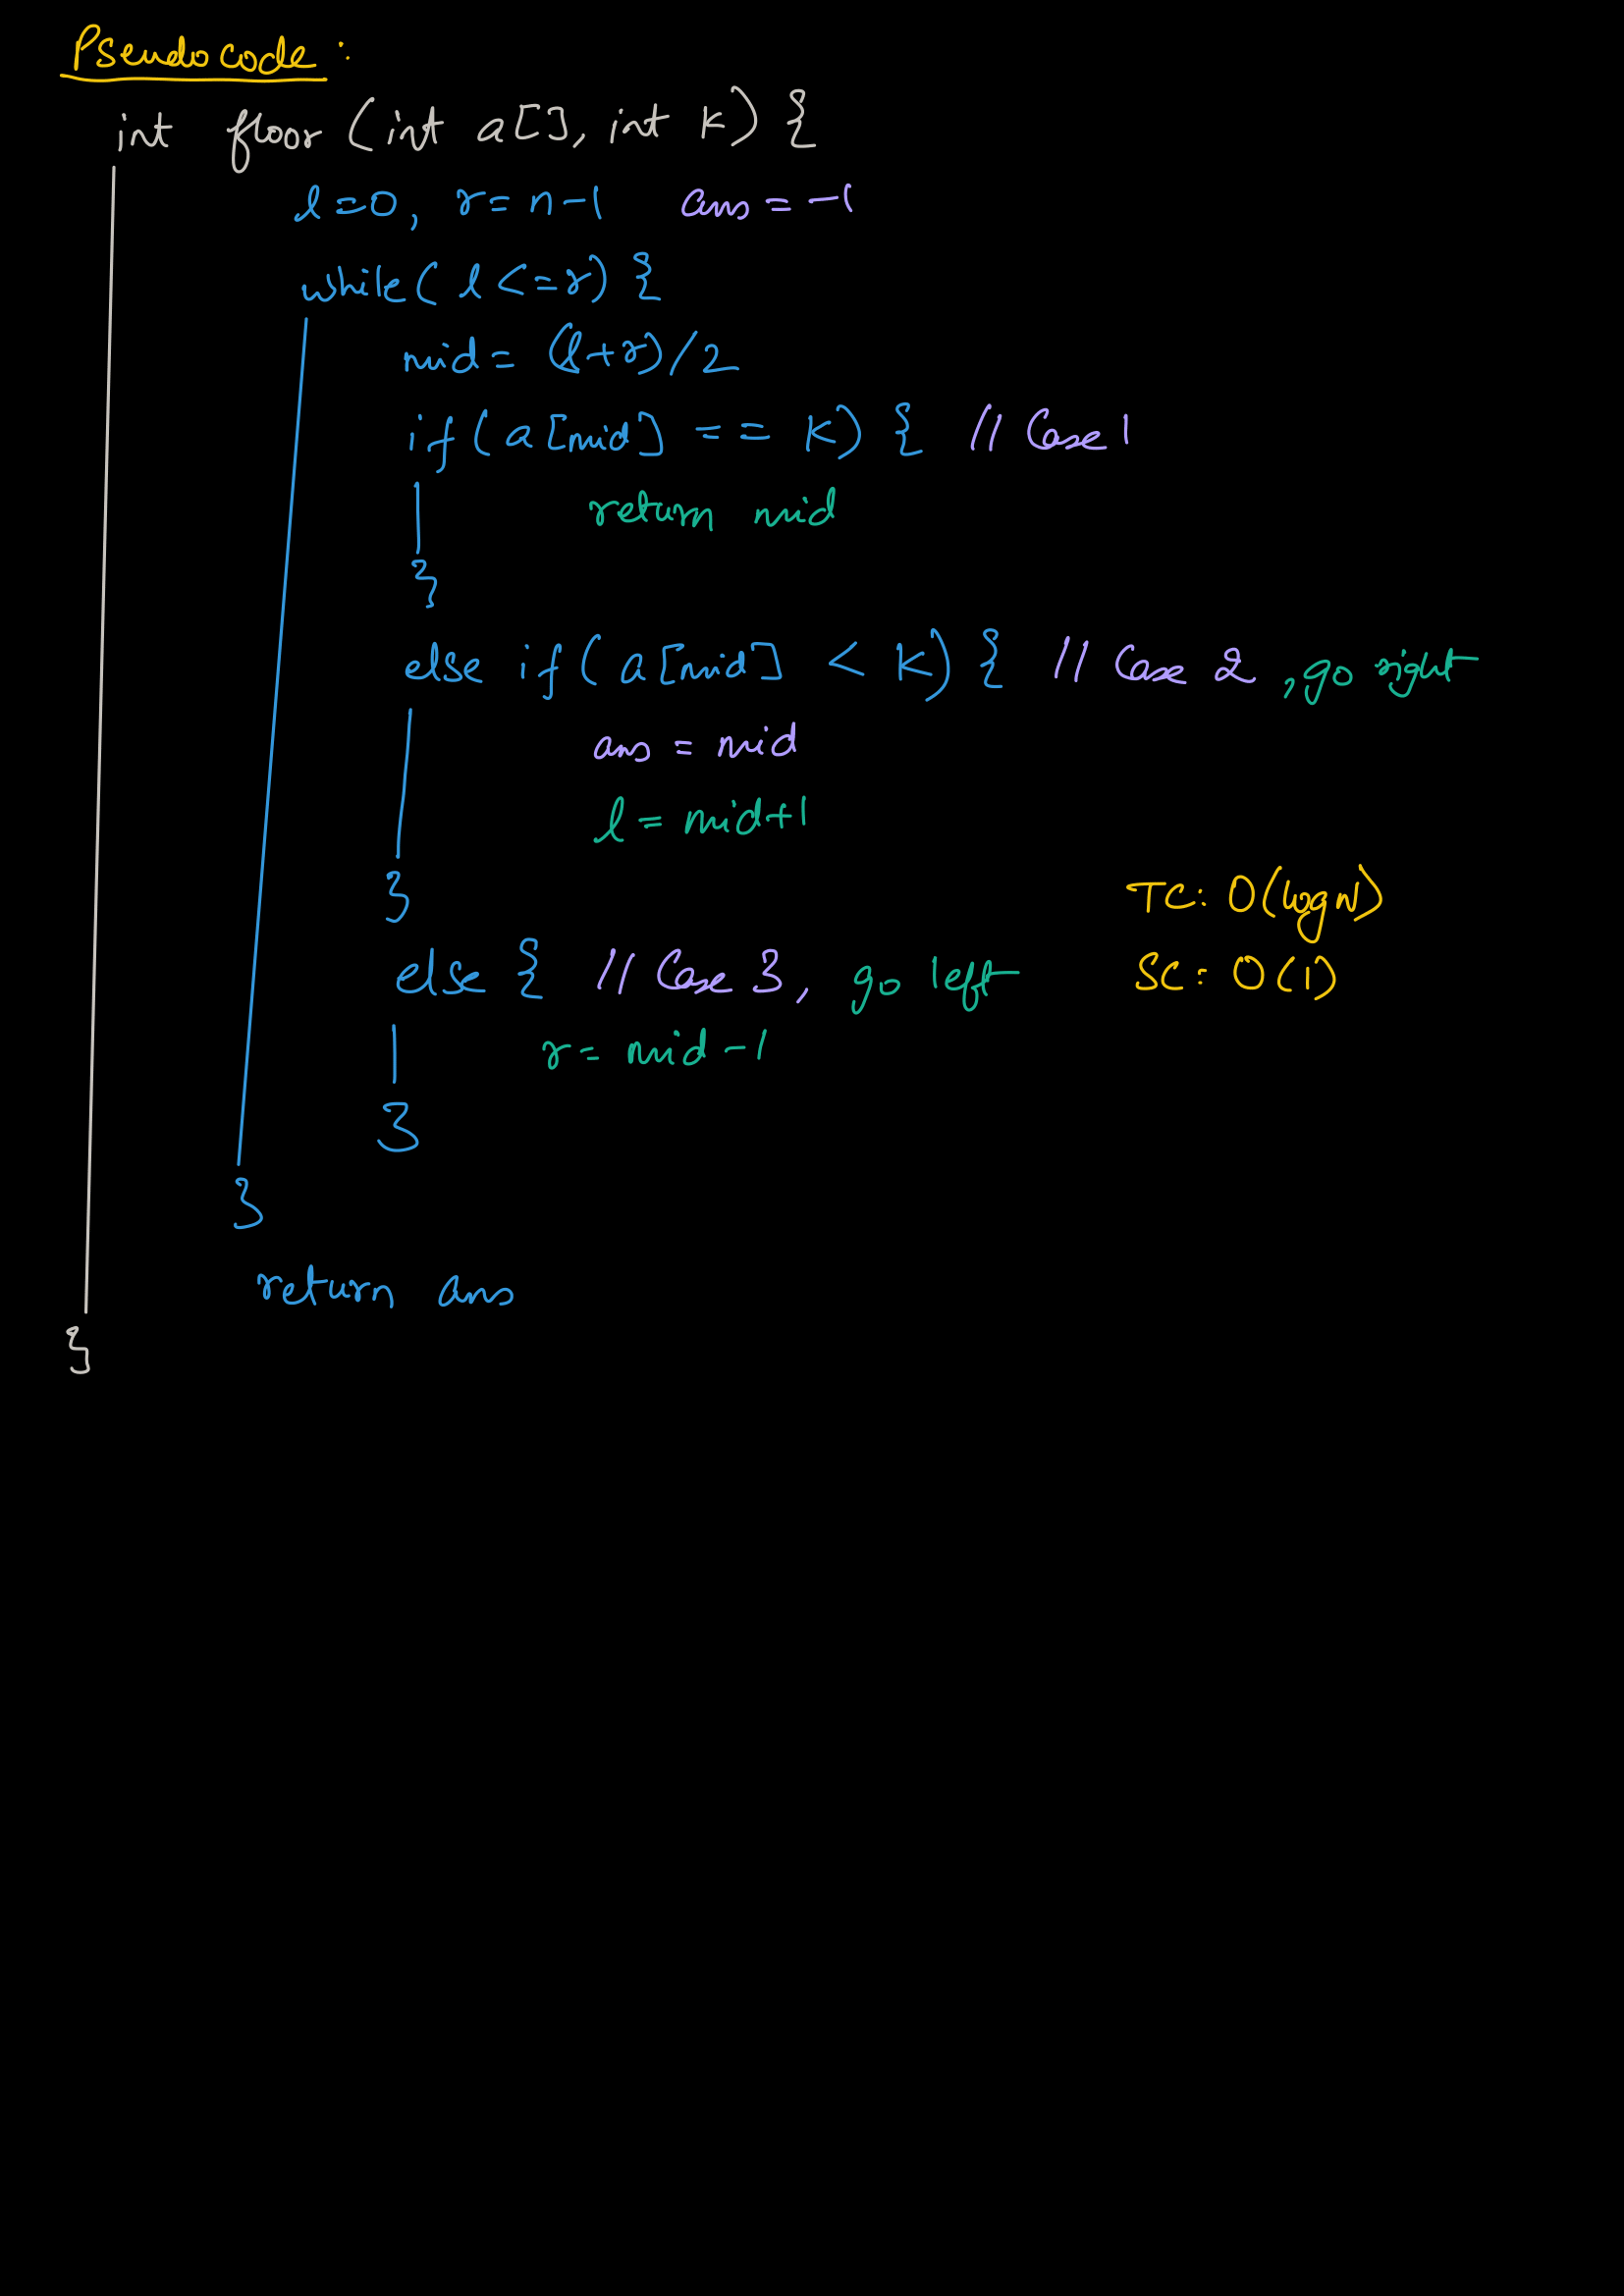 Pseudocode :
int floor (int a[], int K) {
l=0, r= n-1 ans = -1
while( l <=r) {
mid = (l+r)/2
if( a[mid] == K) { // Case 1
return mid
}
else if( a[mid] < K) { // Case 2 , go right
ans = mid
l = mid+1
}
TC: O(log N)
else { // Case 3, go left
SC: O(1)
r= mid -1
}
}
return ans
}